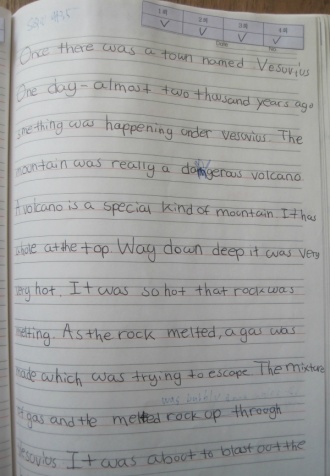 Once there was a town named Vesuvius
One day - almost two thousand years ago
something was happening under vesuvius. The
mountain was really a dangerous volcano.
A volcano is a special kind of mountain. It has
a hole at the top. Way down deep it was very
very hot. It was so hot that rock was
melting. As the rock melted, a gas was
made which was trying to escape. The mixture
of gas and the melted rock up through
vesuvius. It was about to blast out the